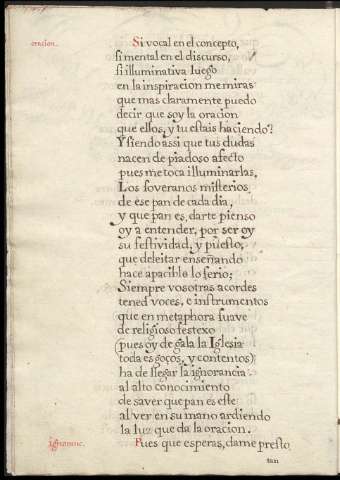 oracion. Si vocal en el concepto,
si mental en el discurso,
si illuminativa luego
en la inspiracion me miras
que mas claramente puedo
decir que soy la oracion
que essos, y tu estais haciendo?
Y siendo assi que tus dudas
nacen de piadoso afecto
pues me toca illuminarlas,
Los soveranos misterios
de ese pan de cada dia,
y que pan es, darte pienso
oy a entender, por ser oy
su festividad, y puesto,
que deleitar enseñando
hace apacible lo serio;
Siempre vosotras acordes
tened voces, e instrumentos
que en metaphora suave
de religioso festexo
(pues oy de gala la Iglesia
toda es goços, y contentos)
ha de llegar la ignorancia
al alto conocimiento
de saver que pan es este
al ver en su mano ardiendo
la luz que da la oracion.
ignoranc. Pues que esperas, dame presto